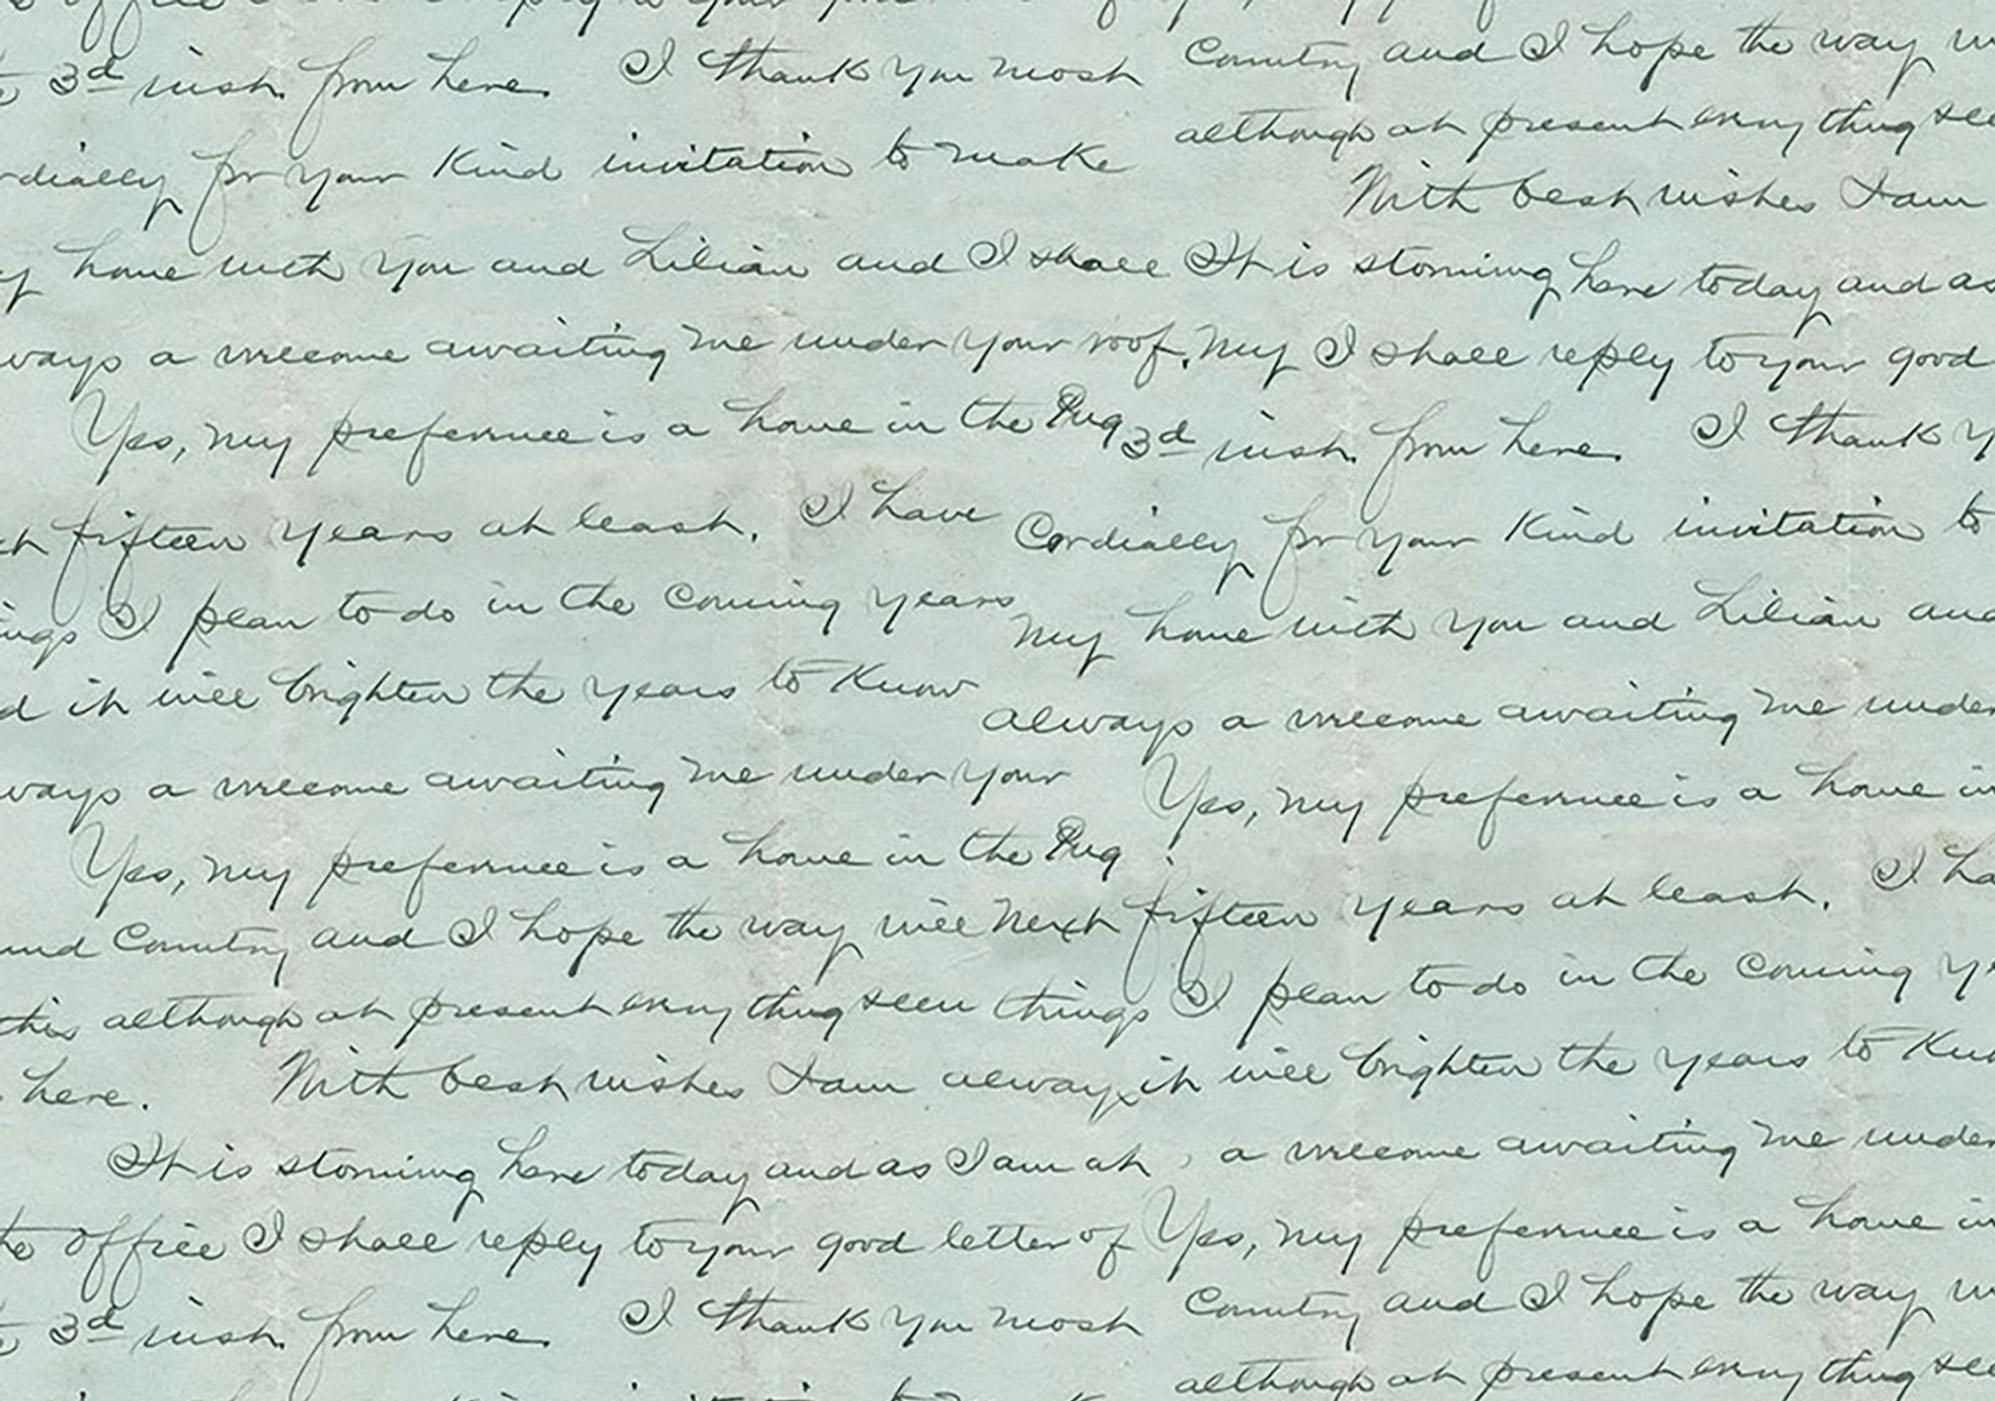 office I shall reply to your good letter of
3d inst. from here. I thank you most Country and I hope the way
rdially for your kind invitation to make although at present every thing see
With best wishes I am
y home with you and Lilian and I shall It is storming here today and as
ways a welcome awaiting me under your roof. My I shall reply to your good
Yes, my preference is a home in the Pug 3d inst. from here. I thank y
fifteen years at least. I have Cordially for your kind invitation to
ings I plan to do in the coming years My home with you and Lilian and
d it will brighten the years to know always a welcome awaiting me under
ways a welcome awaiting me under your Yes, my preference is a home in
Yes, my preference is a home in the Pug
und Country and I hope the way will next fifteen years at least. I ha
this although at present every thing seem things I plan to do in the coming ye
here. With best wishes I am always it will brighten the years to kno
It is storming here today and as I am at a welcome awaiting me under
the office I shall reply to your good letter of Yes, my preference is a home in
3d inst. from here. I thank you most Country and I hope the way
although at present every thing see